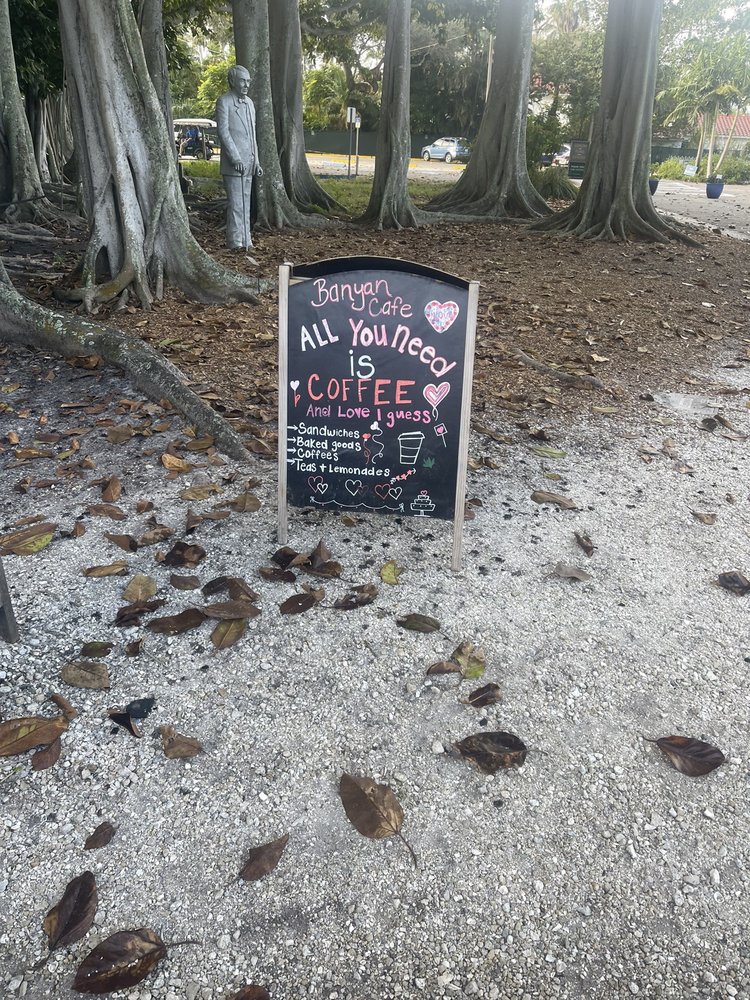 Banyan
Cafe
ALL You need
is
COFFEE
And Love I guess
→Sandwiches
→Baked goods
→Coffee's
→Teas + Lemonades